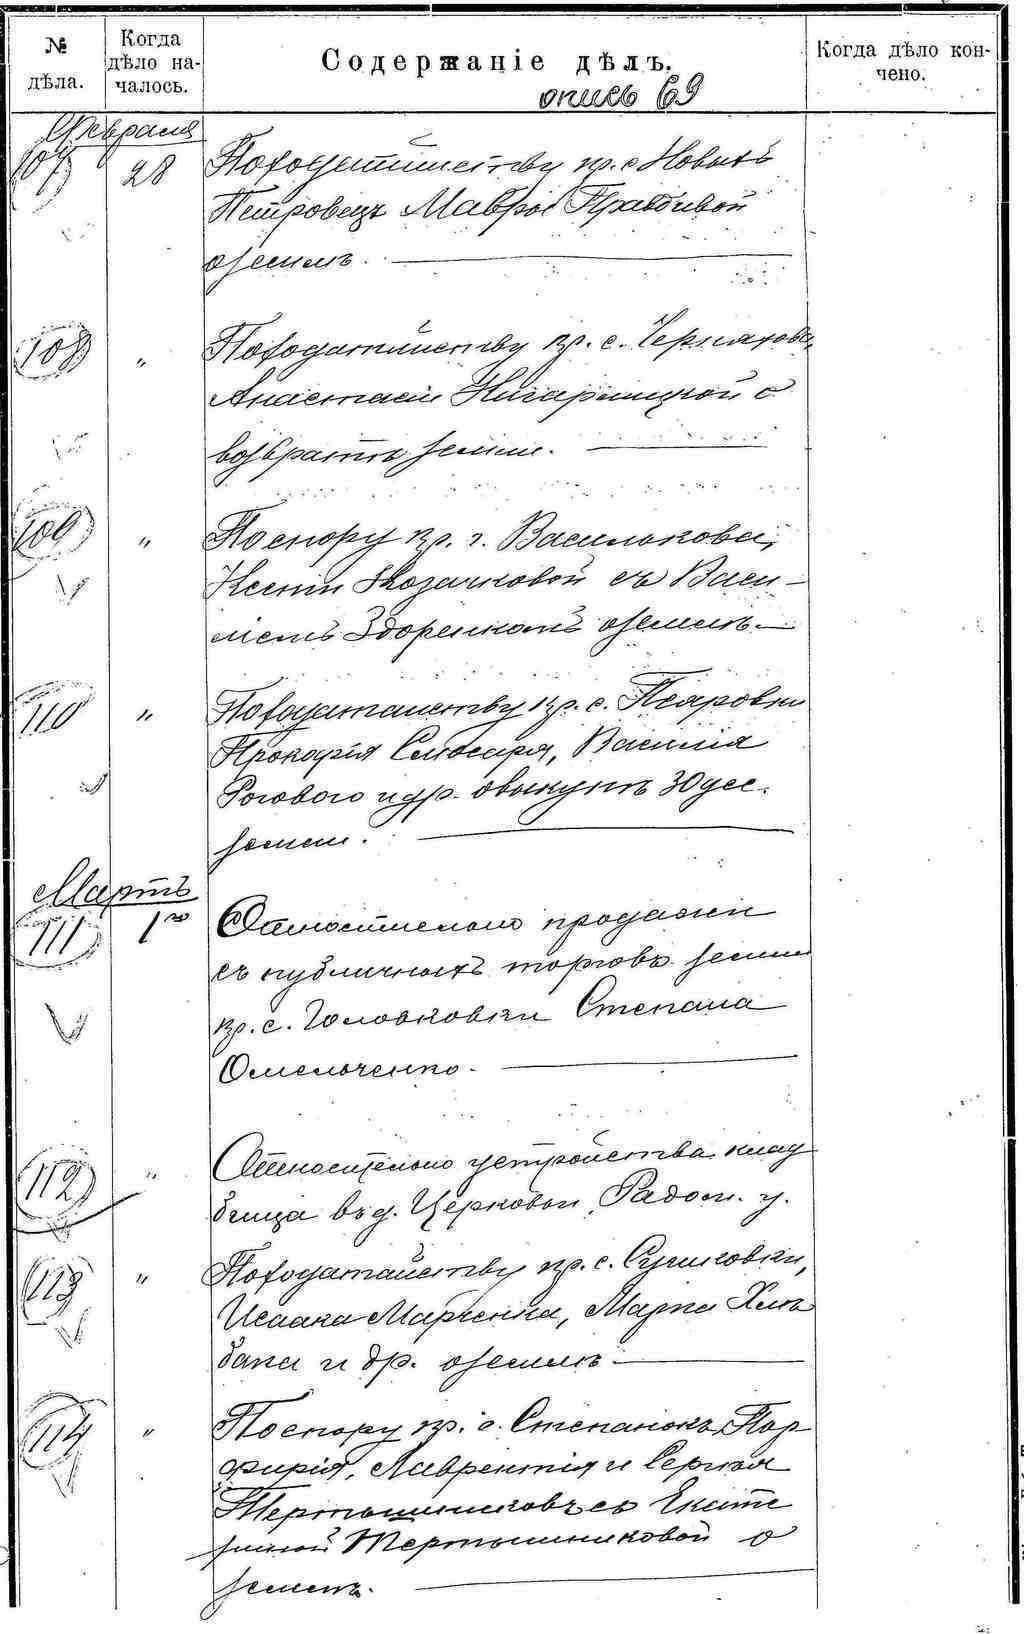 № дѣла.
Когда дѣло на-
чалось.
Содержаніе дѣлъ.
Когда дѣло кон-
чено.
опись 69
Февраля
107 28 По ходатайству кр. с. Новыхъ
Петровецъ Мавры Правдивой
о землѣ.
108 " По ходатайству кр. с. Черняхова,
Анастасіи о
возвратѣ земли.
109 " По спору кр. г. Василькова,
Ксеніи Козачковой съ Васи-
ліемъ Здоренкомъ о землѣ.
110 " По ходатайству кр. с. Псяровки
Прокофія Слюсаря, Василія
Рогового и др. о выкупѣ 30 дес.
земли.
Мартъ
111 1го Относительно продажи
съ публичныхъ торговъ земли
кр. с. Головковки Степана
Омельченко.
112 " Относительно устройства клад
бища въ д. Церковой, Радом. у.
113 " По ходатайству кр. с. Сушковки,
Исаака Марченка, Марка Хлѣ
бана и др. о землѣ.
114 " По спору кр. с. Степанокъ Пор
фирія, Лаврентія и Сергѣя
Мертышниковъ съ Екате
риной Мертышниковой о
землѣ.